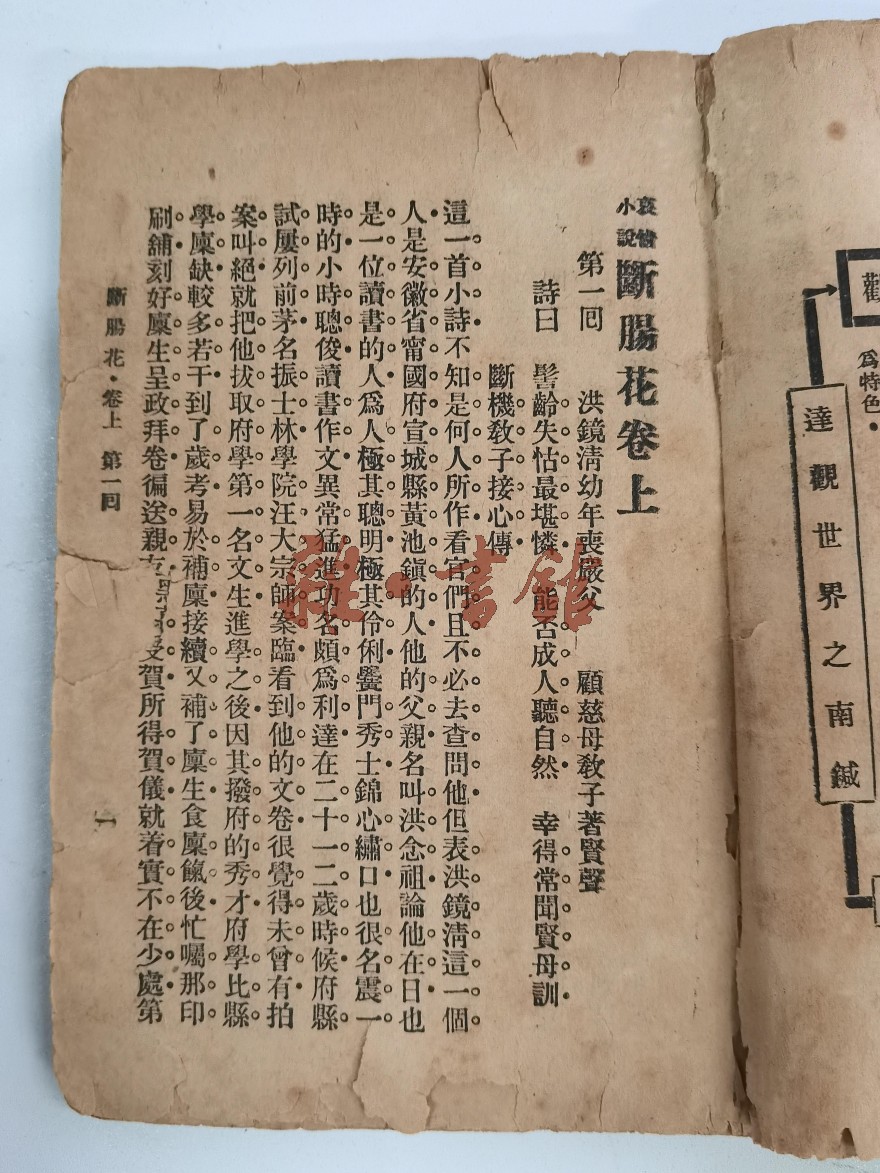 勸
爲特色・
達觀世界之南鍼
哀情小說 斷腸花卷上
第一囘 洪鏡清幼年喪嚴父 顧慈母敎子著賢聲
詩曰 髫齡失怙最堪憐 能否成人聽自然 幸得常聞賢母訓
斷機敎子接心傳
這一首小詩不知是何人所作看官們且不必去查問他但表洪鏡清這一個
人是安徽省甯國府宣城縣黃池鎭的人他的父親名叫洪念祖論他在日也
是一位讀書的人爲人極其聰明極其伶俐黌門秀士錦心繡口也很名震一
時的小時聰俊讀書作文異常猛進功名頗爲利達在二十一二歲時候府縣
試屢列前茅名振士林學院汪大宗師案臨看到他的文卷很覺得未曾有拍
案叫絕就把他拔取府學第一名文生進學之後因其撥府的秀才府學比縣
學廩缺較多若干到了歲考易於補廩接續又補了廩生食廩餼後忙囑那印
刷舖刻好廩生呈政拜卷徧送親友受賀所得賀儀就着實不在少處第
斷腸花・卷上 第一囘
一
雜・書館